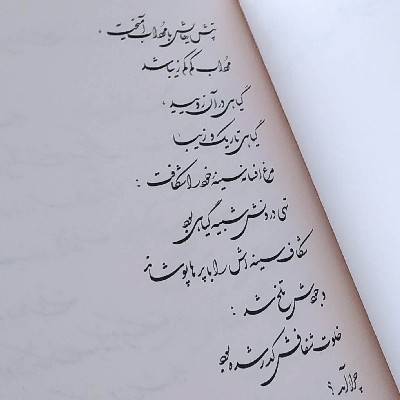 تپش‌هایش با مهراب آمیخت،
مهراب کم کم زیبا شد
گیاهی در آن رویید،
گیاهی تاریک و زیبا
مرغ افسانه سینهٔ خود را شکافت:
تهی درونش شبیه گیاهی بود
شکاف سینه‌اش را با پرها پوشاند
وجودش تلخ شد:
خلوت شفافش کدر شده بود
چرا آمد؟